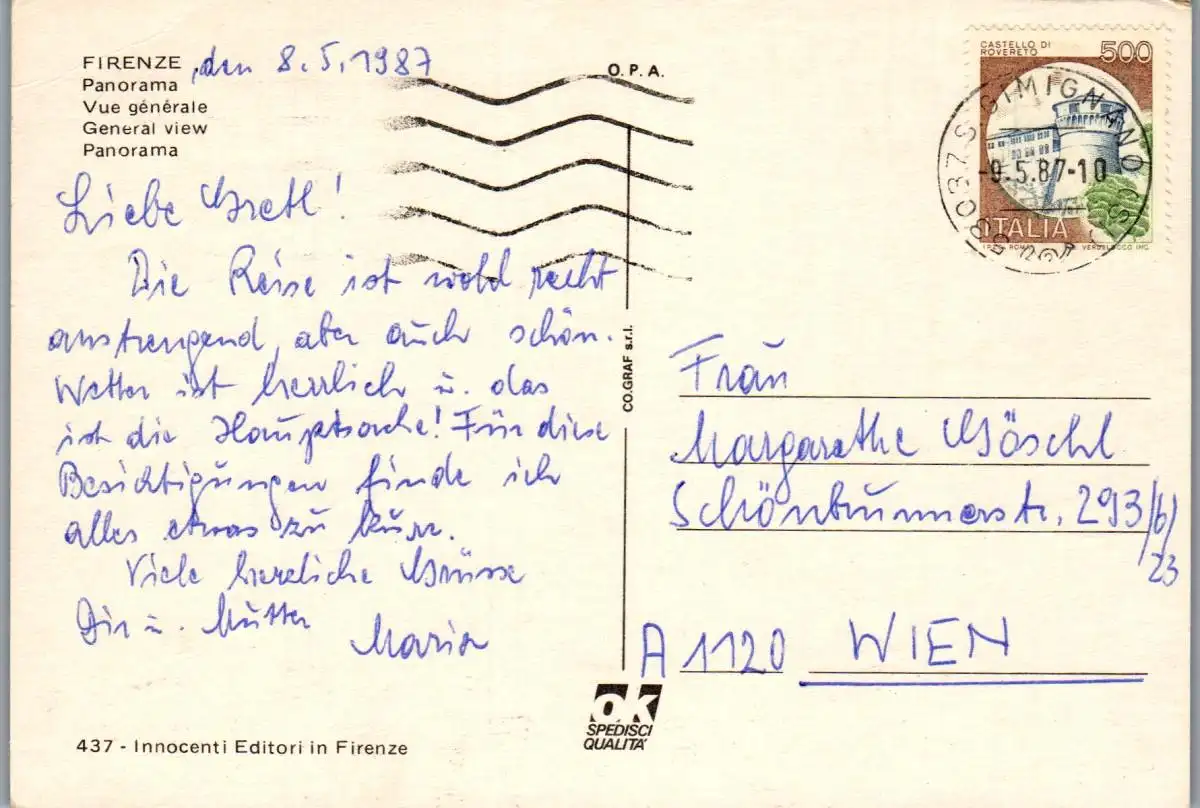 FIRENZE, den 8.5.1987
Panorama
Vue générale
General view
Panorama
Liebe Gretl!
Die Reise ist wohl recht
anstrengend, aber auch schön.
Wetter ist herrlich u. das
ist die Hauptsache! Für diese
Besichtigungen finde ich
alles etwas zu kurz.
Viele herzliche Grüsse
Dir u. Mutter
Maria
437 - Innocenti Editori in Firenze
O.P.A.
CO.GRAF s.r.l.
ok
SPEDISCI
QUALITA'
CASTELLO DI
ROVERETO
500
ITALIA
53037 S. GIMIGNANO
-9.5.87-10
Frau
Margarethe Göschl
Schönbrunnerstr. 293/6/
23
A 1120 WIEN